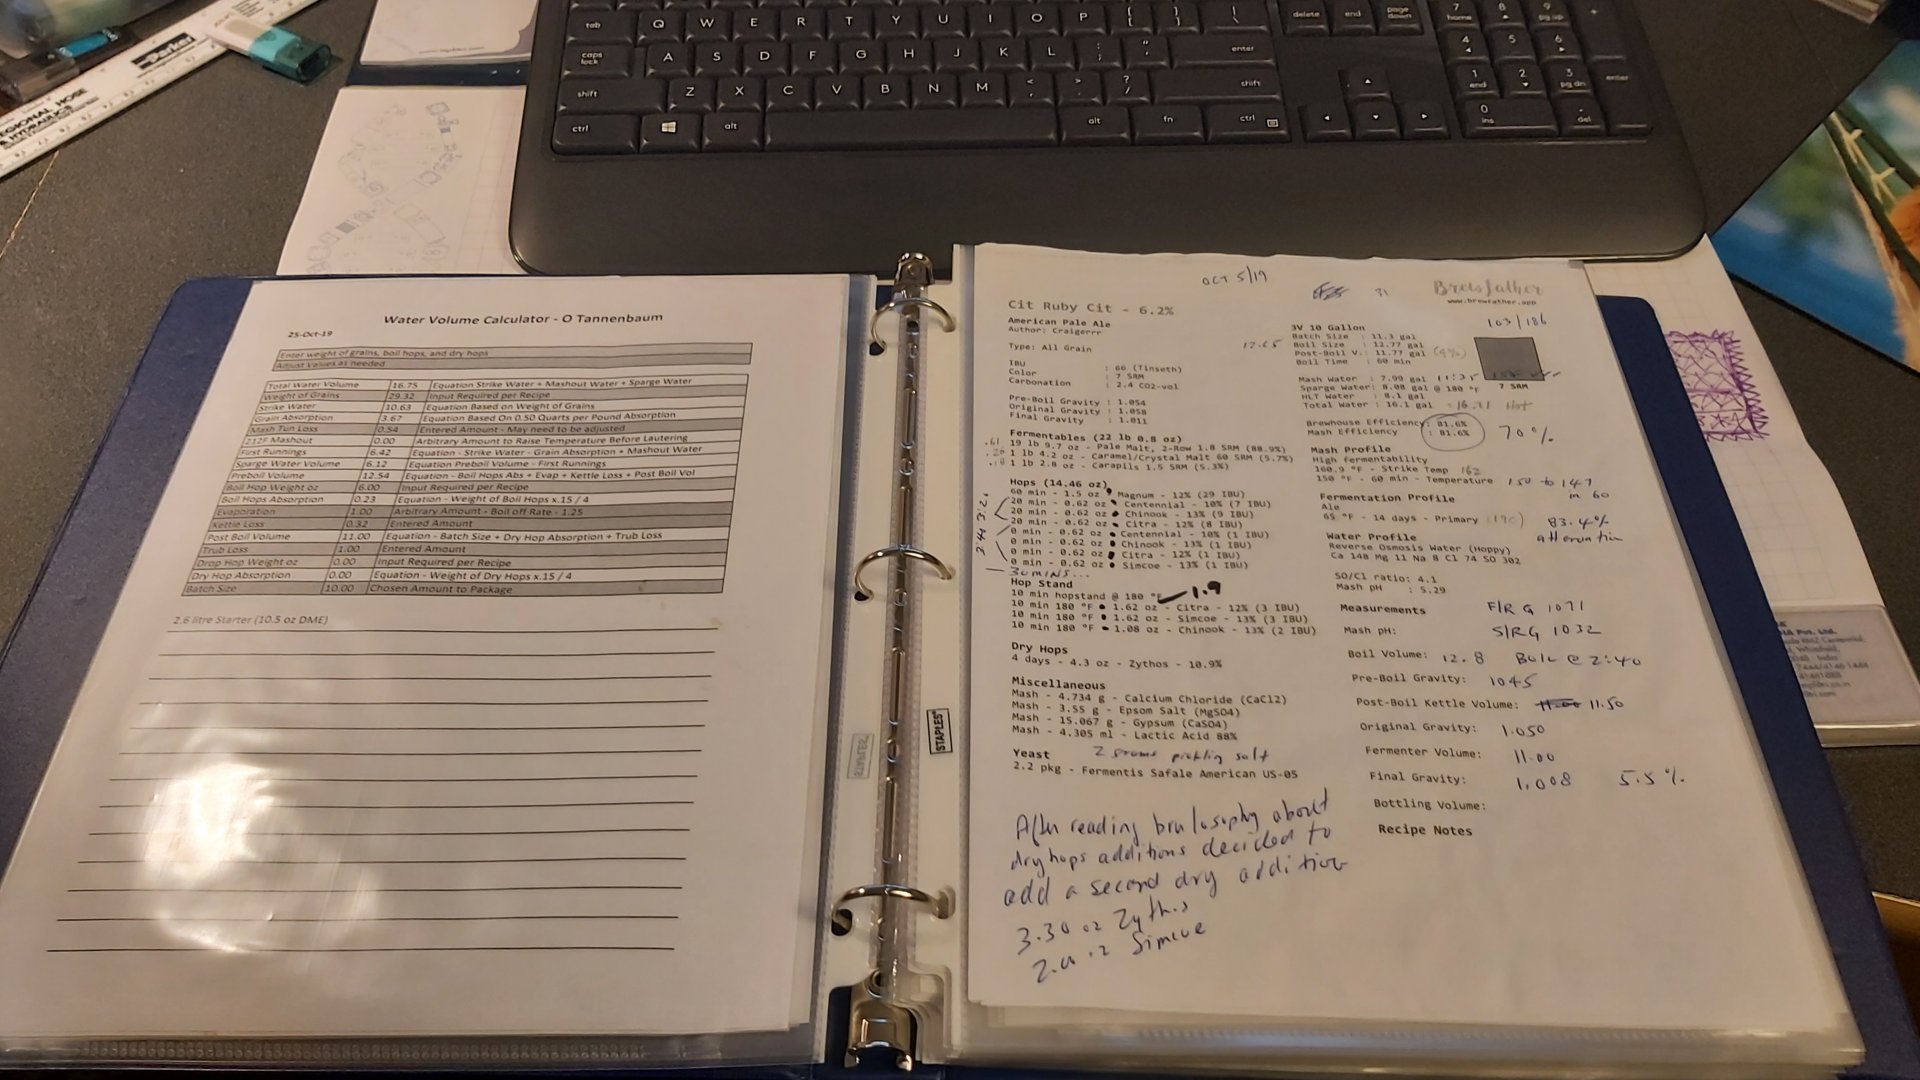 tab Q W E R T Y U I O P { [ } ] | \ delete end page down 7 home 8 9 pg up +
caps lock A S D F G H J K L : ; " ' enter 4 5 6
shift Z X C V B N M < , > . ? / shift 1 end 2 3 pg dn enter
ctrl alt alt fn ctrl 0 ins . del
EGIONAL HOSE
& HYDRAULICS
Water Volume Calculator - O Tannenbaum
25-Oct-19
Enter weight of grains, boil hops, and dry hops
Adjust Values as needed
Total Water Volume 16.75 Equation Strike Water + Mashout Water + Sparge Water
Weight of Grains 29.32 Input Required per Recipe
Strike Water 10.63 Equation Based on Weight of Grains
Grain Absorption 3.67 Equation Based On 0.50 Quarts per Pound Absorption
Mash Tun Loss 0.54 Entered Amount - May need to be adjusted
212F Mashout 0.00 Arbitrary Amount to Raise Temperature Before Lautering
First Runnings 6.42 Equation - Strike Water - Grain Absorption + Mashout Water
Sparge Water Volume 6.12 Equation Preboil Volume - First Runnings
Preboil Volume 12.54 Equation - Boil Hops Abs + Evap + Kettle Loss + Post Boil Vol
Boil Hop Weight oz 6.00 Input Required per Recipe
Boil Hops Absorption 0.23 Equation - Weight of Boil Hops x.15 / 4
Evaporation 1.00 Arbitrary Amount - Boil off Rate - 1.25
Kettle Loss 0.32 Entered Amount
Post Boil Volume 11.00 Equation - Batch Size + Dry Hop Absorption + Trub Loss
Trub Loss 1.00 Entered Amount
Drop Hop Weight oz 0.00 Input Required per Recipe
Dry Hop Absorption 0.00 Equation - Weight of Dry Hops x.15 / 4
Batch Size 10.00 Chosen Amount to Package
2.6 litre Starter (10.5 oz DME)
STAPLES
OCT 5/19
31
Brewfather
www.brewfather.app
103/186
Cit Ruby Cit - 6.2%
American Pale Ale
Author: Craigerrr
Type: All Grain
12.65
IBU : 66 (Tinseth)
Color : 7 SRM
Carbonation : 2.4 CO2-vol
Pre-Boil Gravity : 1.054
Original Gravity : 1.058
Final Gravity : 1.011
Fermentables (22 lb 0.8 oz)
.61 19 lb 9.7 oz - Pale Malt, 2-Row 1.8 SRM (88.9%)
1 lb 4.2 oz - Caramel/Crystal Malt 60 SRM (5.7%)
1 lb 2.8 oz - Carapils 1.5 SRM (5.3%)
Hops (14.46 oz)
60 min - 1.5 oz Magnum - 12% (29 IBU)
20 min - 0.62 oz Centennial - 10% (7 IBU)
20 min - 0.62 oz Chinook - 13% (9 IBU)
20 min - 0.62 oz Citra - 12% (8 IBU)
0 min - 0.62 oz Centennial - 10% (1 IBU)
0 min - 0.62 oz Chinook - 13% (1 IBU)
0 min - 0.62 oz Citra - 12% (1 IBU)
0 min - 0.62 oz Simcoe - 13% (1 IBU)
30 MINS...
Hop Stand
10 min hopstand @ 180 °F 1.9
10 min 180 °F 1.62 oz - Citra - 12% (3 IBU)
10 min 180 °F 1.62 oz - Simcoe - 13% (3 IBU)
10 min 180 °F 1.08 oz - Chinook - 13% (2 IBU)
Dry Hops
4 days - 4.3 oz - Zythos - 10.9%
Miscellaneous
Mash - 4.734 g - Calcium Chloride (CaCl2)
Mash - 3.55 g - Epsom Salt (MgSO4)
Mash - 15.067 g - Gypsum (CaSO4)
Mash - 4.305 ml - Lactic Acid 88%
Yeast 2 grams pickling salt
2.2 pkg - Fermentis Safale American US-05
After reading brulosophy about
dry hops additions decided to
add a second dry addition
3.30 oz Zythos
Simcoe
3V 10 Gallon
Batch Size : 11.3 gal
Boil Size : 12.77 gal
Post-Boil V.: 11.77 gal (4%)
Boil Time : 60 min
7 SRM
Mash Water : 7.99 gal
Sparge Water: 8.08 gal @ 180 °F
HLT Water : 8.1 gal
Total Water : 16.1 gal
Brewhouse Efficiency: 81.6%
Mash Efficiency : 81.6% 70%
Mash Profile
High fermentability
160.9 °F - Strike Temp 162
150 °F - 60 min - Temperature 150 to 147
in 60
Fermentation Profile
Ale
65 °F - 14 days - Primary 83.4%
attenuation
Water Profile
Reverse Osmosis Water (Hoppy)
Ca 148 Mg 11 Na 8 Cl 74 SO 302
SO/Cl ratio: 4.1
Mash pH : 5.29
Measurements F/R G 1071
Mash pH: S/RG 1032
Boil Volume: 12.8 Boil @ 2:40
Pre-Boil Gravity: 1045
Post-Boil Kettle Volume: 11.00 11.50
Original Gravity: 1.050
Fermenter Volume: 11.00
Final Gravity: 1.008 5.5%
Bottling Volume:
Recipe Notes